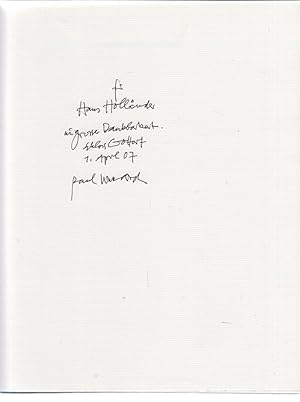 für
Hans Holländer
in grosser Dankbarkeit.
Schloss Gottorf
1. April 07
Paul Wunderlich